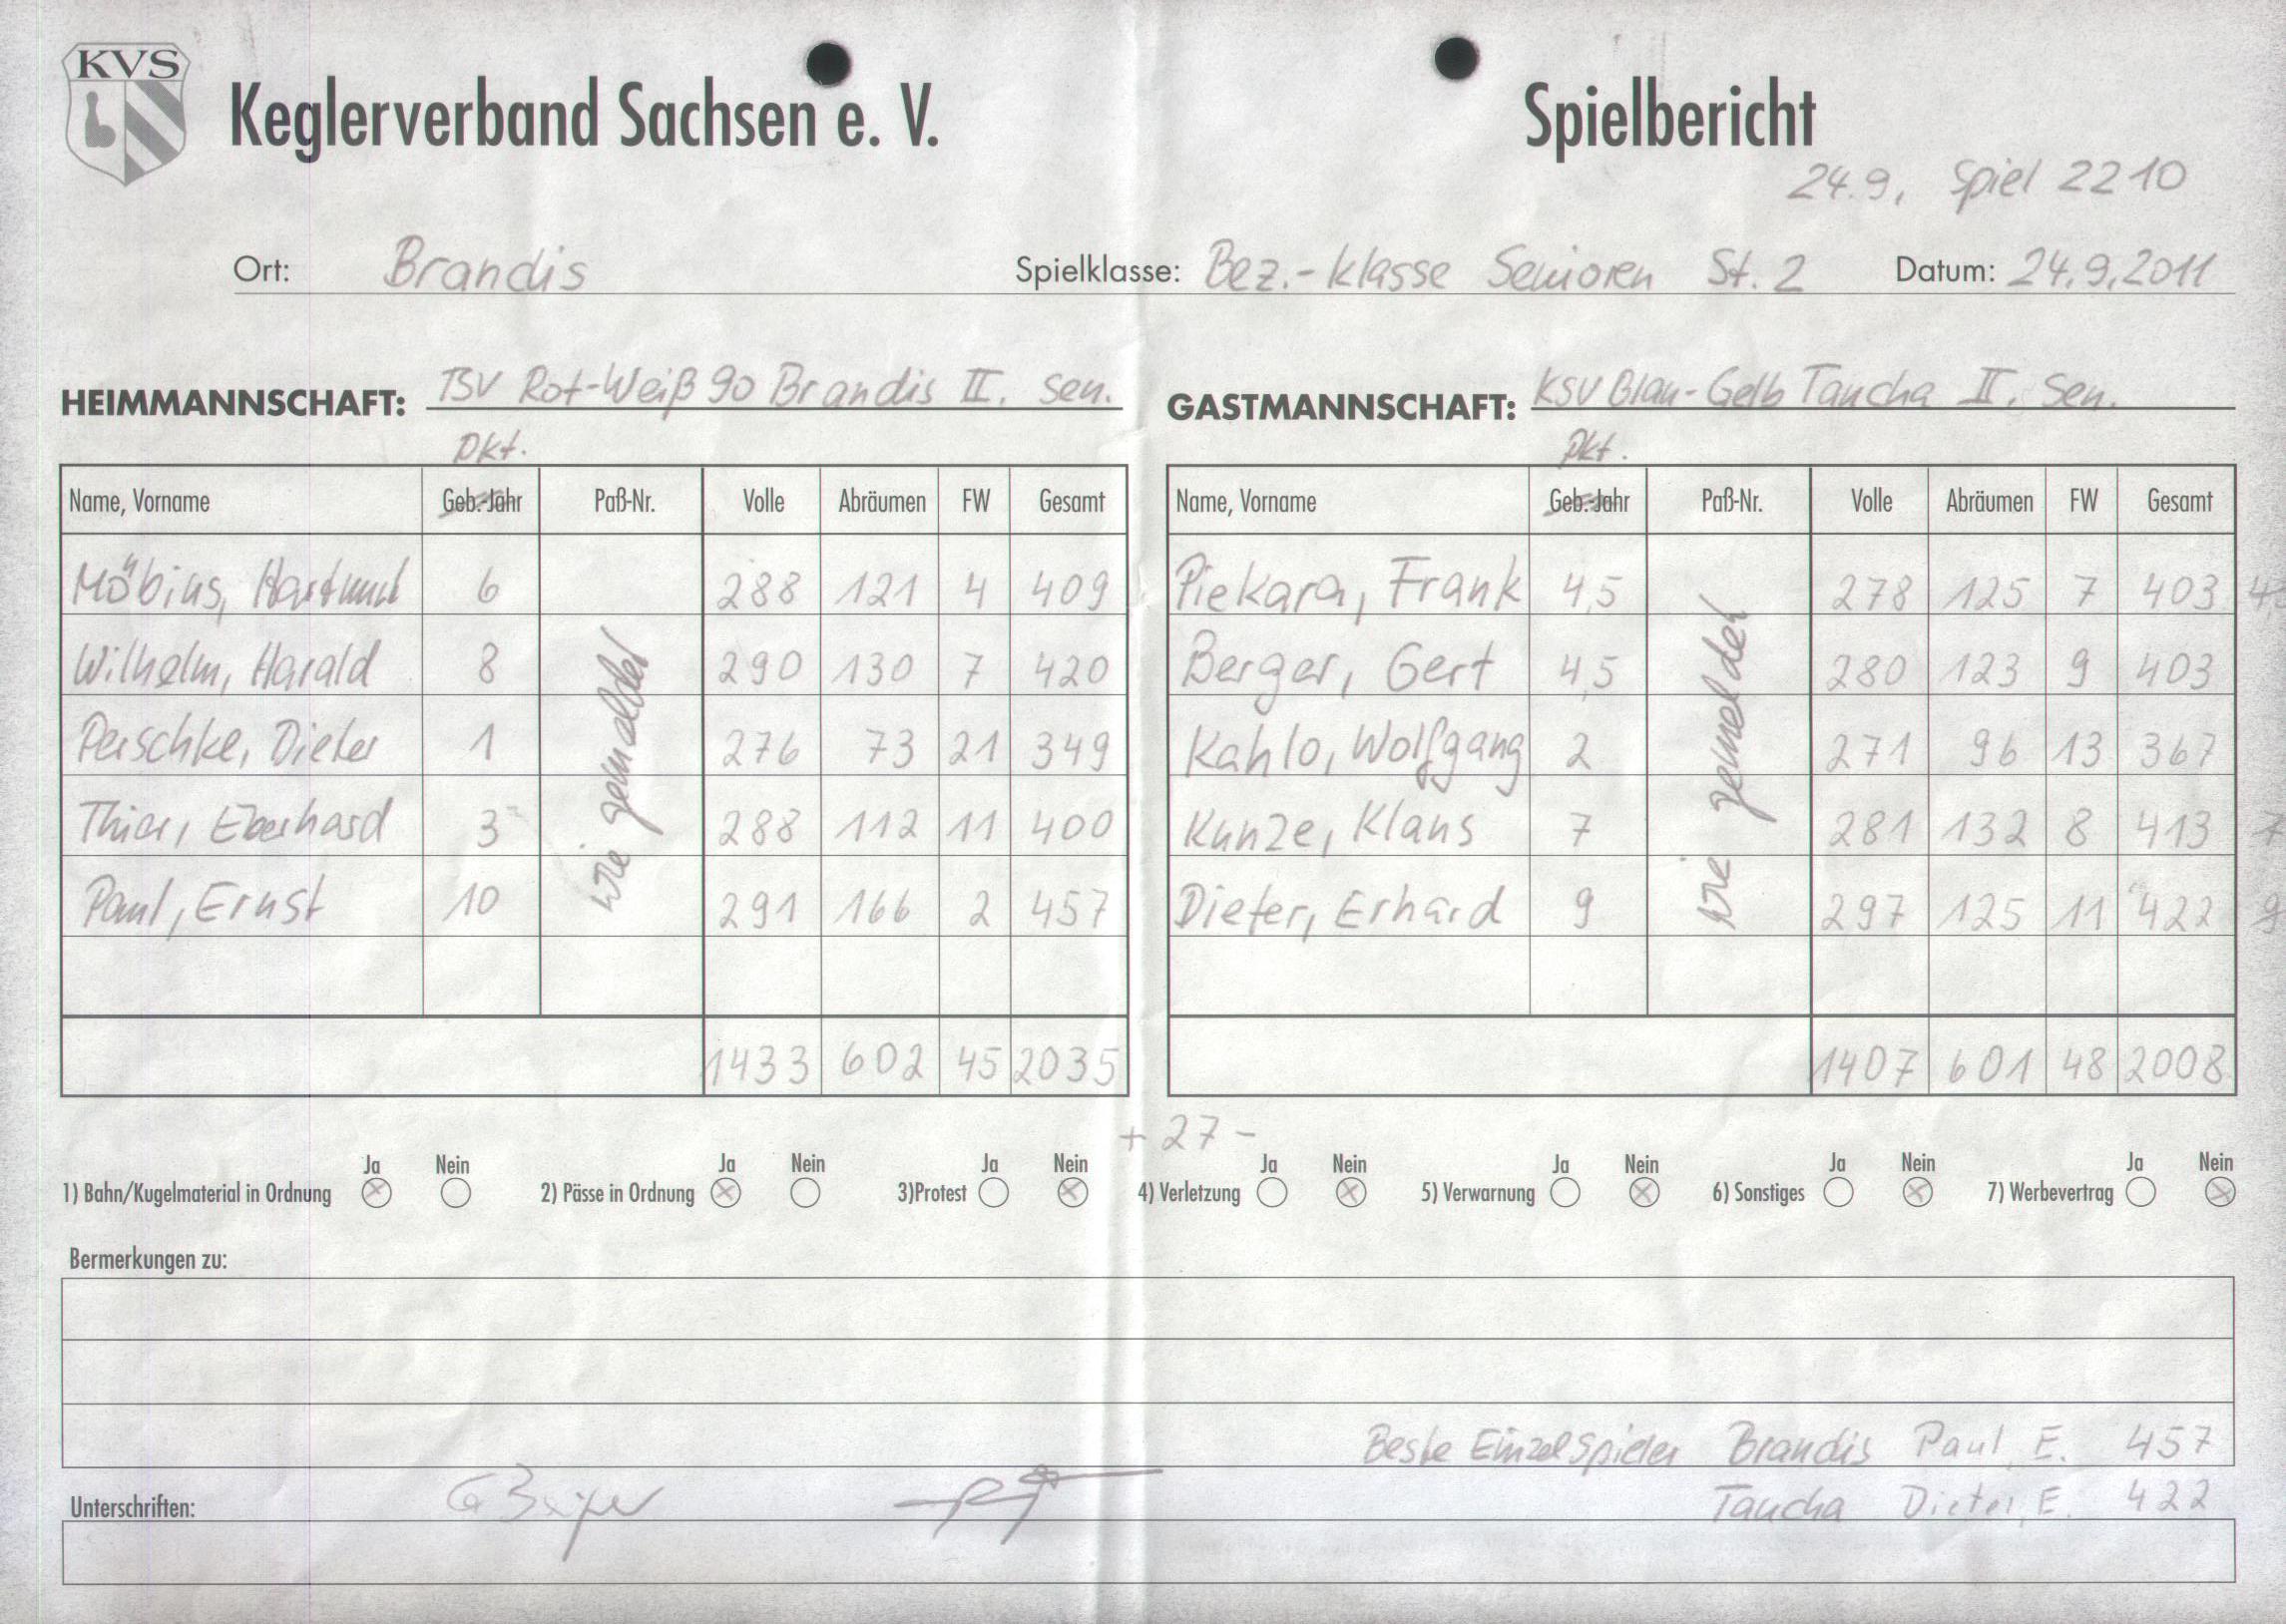 KVS
Keglerverband Sachsen e. V.
Spielbericht
24.9, Spiel 2210
Ort: Brandis Spielklasse: Bez.-klasse Senioren St. 2 Datum: 24.9.2011
HEIMMANNSCHAFT: TSV Rot-Weiß 90 Brandis II. Sen. GASTMANNSCHAFT: KSV Blau-Gelb Taucha II. Sen.
Pkt. Pkt.
Name, Vorname Geb.-Jahr Paß-Nr. Volle Abräumen FW Gesamt Name, Vorname Geb.-Jahr Paß-Nr. Volle Abräumen FW Gesamt
Möbius, Hartmut 6 288 121 4 409 Piekara, Frank 4,5 278 125 7 403
Wilhelm, Harald 8 290 130 7 420 Berger, Gert 4,5 280 123 9 403
Perschke, Dieter 1 276 73 21 349 Kahlo, Wolfgang 2 271 96 13 367
Thier, Eberhard 3 288 112 11 400 Kunze, Klaus 7 281 132 8 413 7
Paul, Ernst 10 291 166 2 457 Dieter, Erhard 9 297 125 11 422 9
wie gemeldet wie gemeldet
1433 602 45 2035 1407 601 48 2008
+ 27 -
Ja Nein Ja Nein Ja Nein Ja Nein Ja Nein Ja Nein Ja Nein
1) Bahn/Kugelmaterial in Ordnung 2) Pässe in Ordnung 3)Protest 4) Verletzung 5) Verwarnung 6) Sonstiges 7) Werbevertrag
Bermerkungen zu:
Beste Einzelspieler Brandis Paul, E. 457
Unterschriften: Taucha Dieter, E. 422